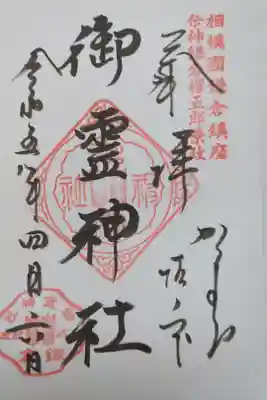 相模國鎌倉鎮座
祭神鎌倉權五郎景政
奉拝
かまくら
坂ノ下
御霊神社
令和五年四月六日